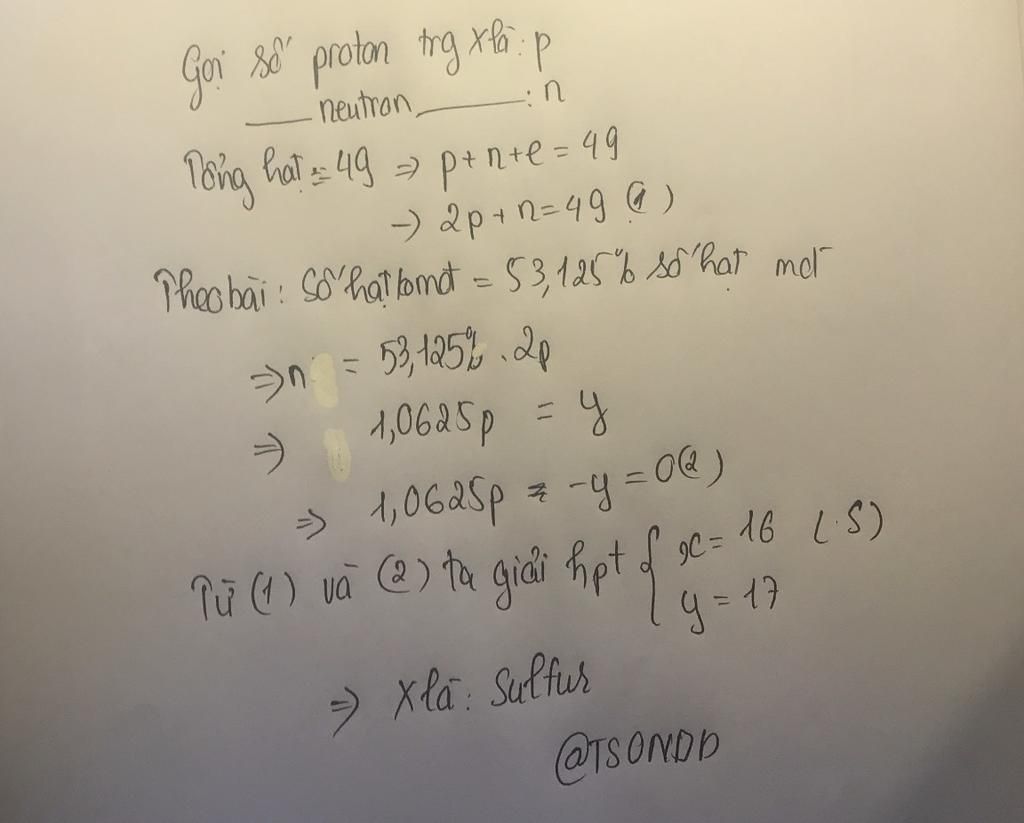 Gọi số proton trg X là: p
___ neutron ______: n
Tổng hạt = 49 => p + n + e = 49
-> 2p + n = 49 (1)
Theo bài: Số hạt komđ = 53,125% số hạt mđ
=> n = 53,125% . 2p
=> 1,0625p = y
=> 1,0625p - y = 0 (2)
Từ (1) và (2) ta giải hpt { x = 16 (S)
y = 17
=> X là: Sulfur
@TSONDD